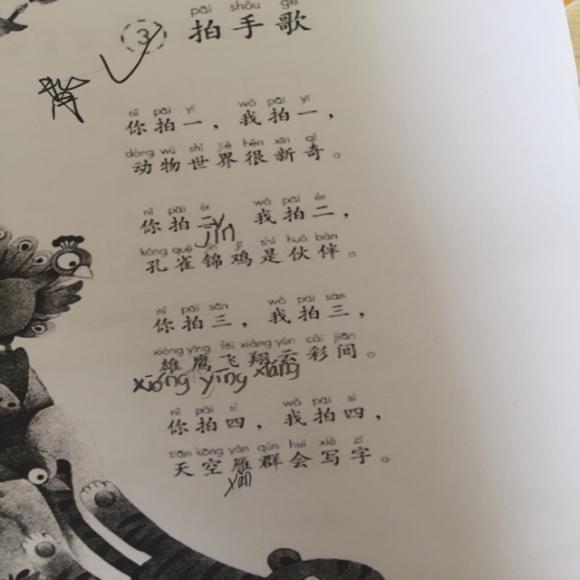 pāi shǒu gē
3 拍手歌
背
nǐ pāi yī wǒ pāi yī
你拍一，我拍一，
dòng wù shì jiè hěn xīn qí
动物世界很新奇。
nǐ pāi èr wǒ pāi èr
你拍二，我拍二，
jǐn
kǒng què jǐn jī shì huǒ bàn
孔雀锦鸡是伙伴。
nǐ pāi sān wǒ pāi sān
你拍三，我拍三，
xióng yīng fēi xiáng yún cǎi jiān
雄鹰飞翔云彩间。
xióng yīng xiáng
nǐ pāi sì wǒ pāi sì
你拍四，我拍四，
tiān kōng yàn qún huì xiě zì
天空雁群会写字。
yàn